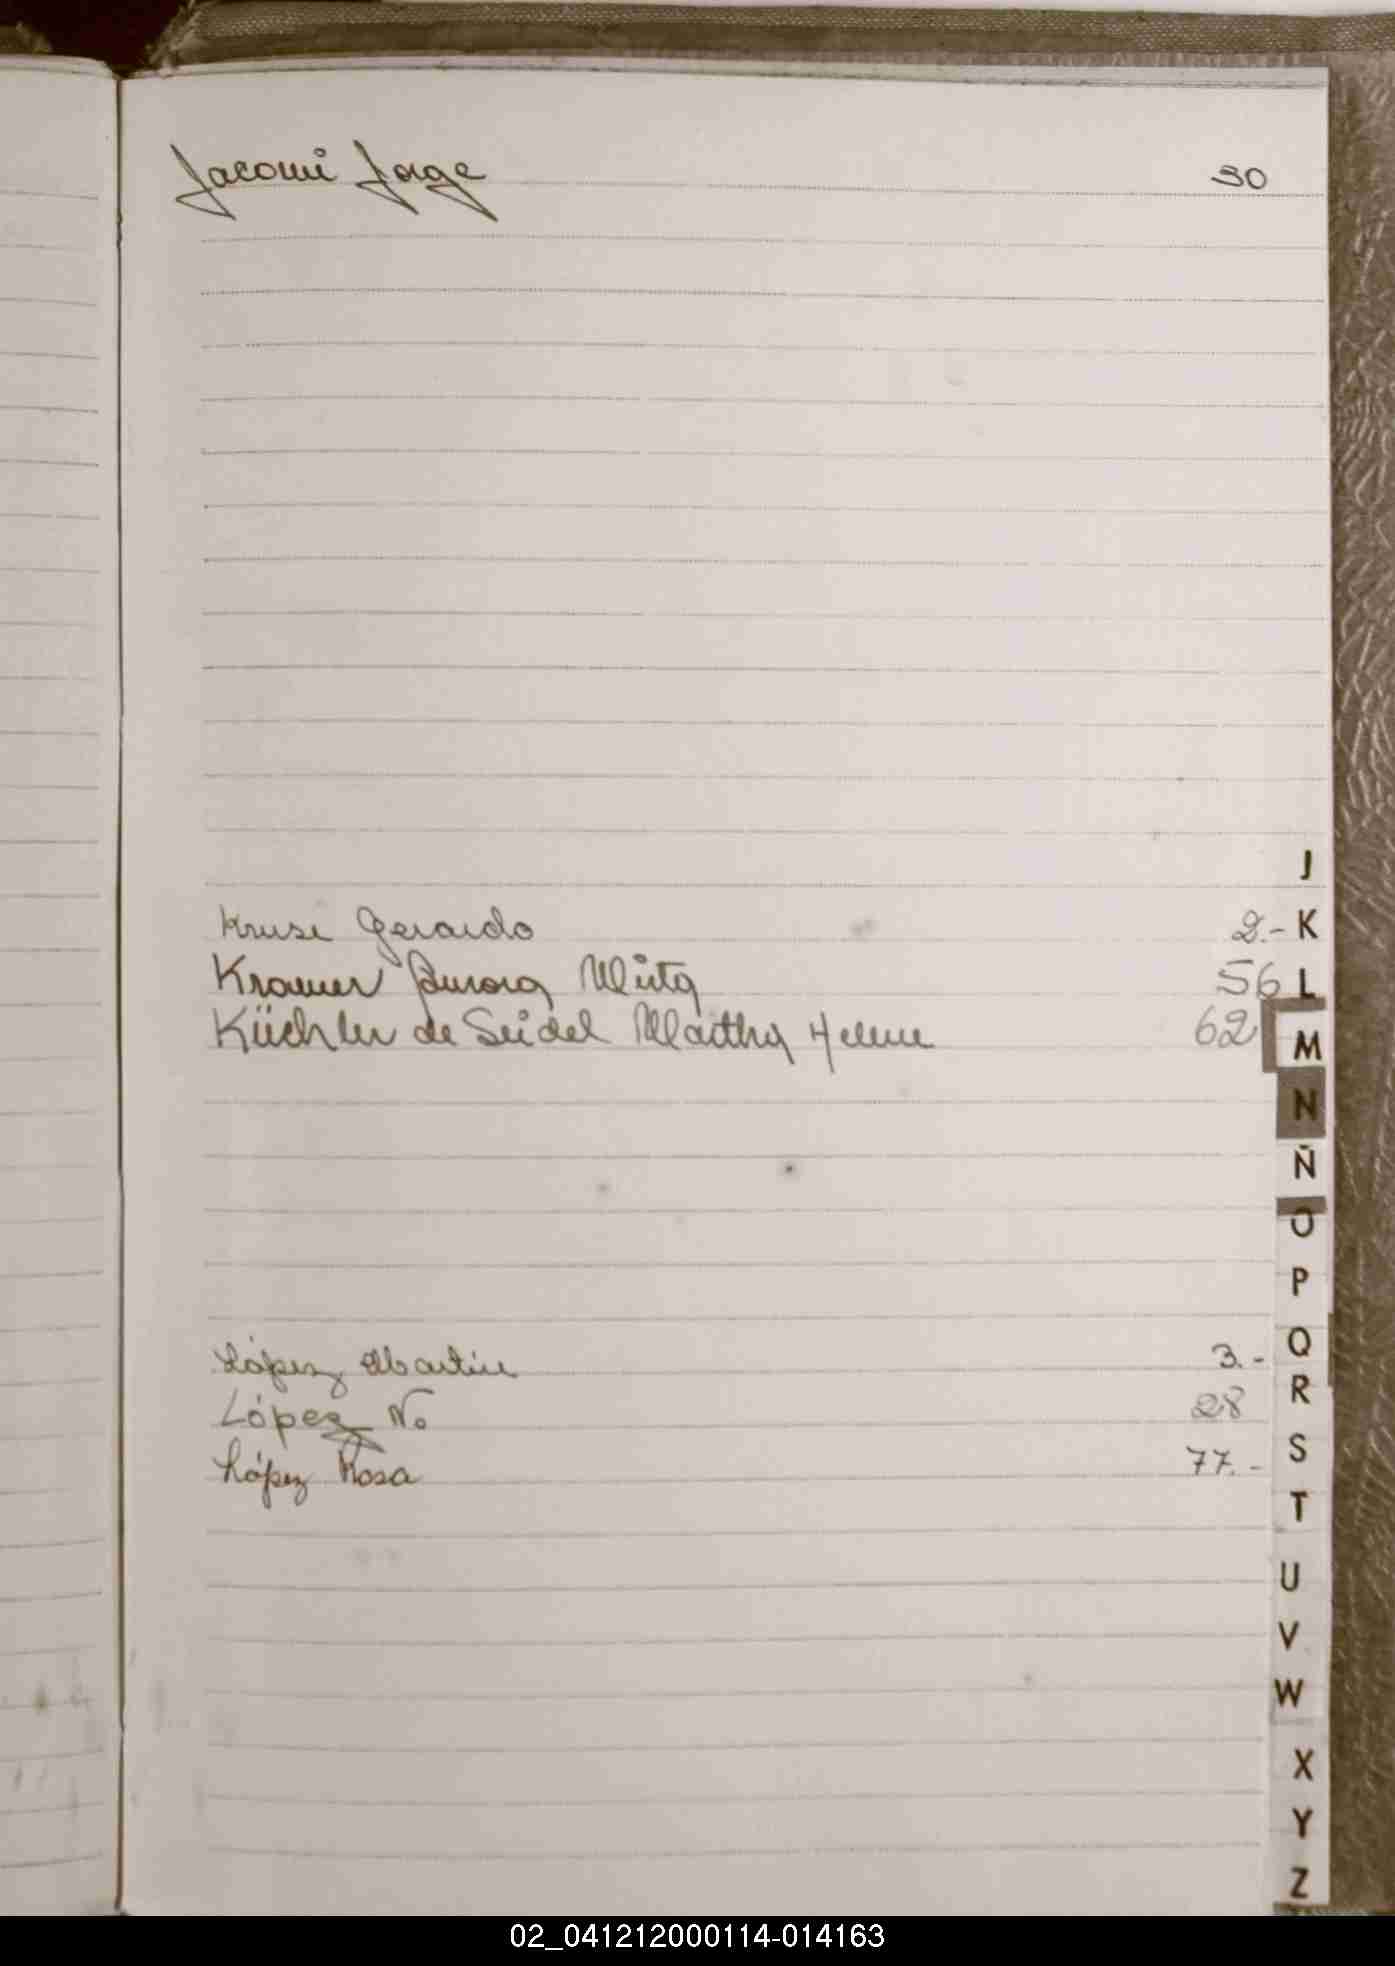 Jacomi Jorge 30
J
Kruse Gerardo 2.- K
Kramer Aurora Mirta 56 L
Küchler de Seidel Martha Helene 62 M
N
Ñ
O
P
Q
López Martin 3.-
R
López N. 28
S
López Rosa 77.-
T
U
V
W
X
Y
Z
02_041212000114-014163